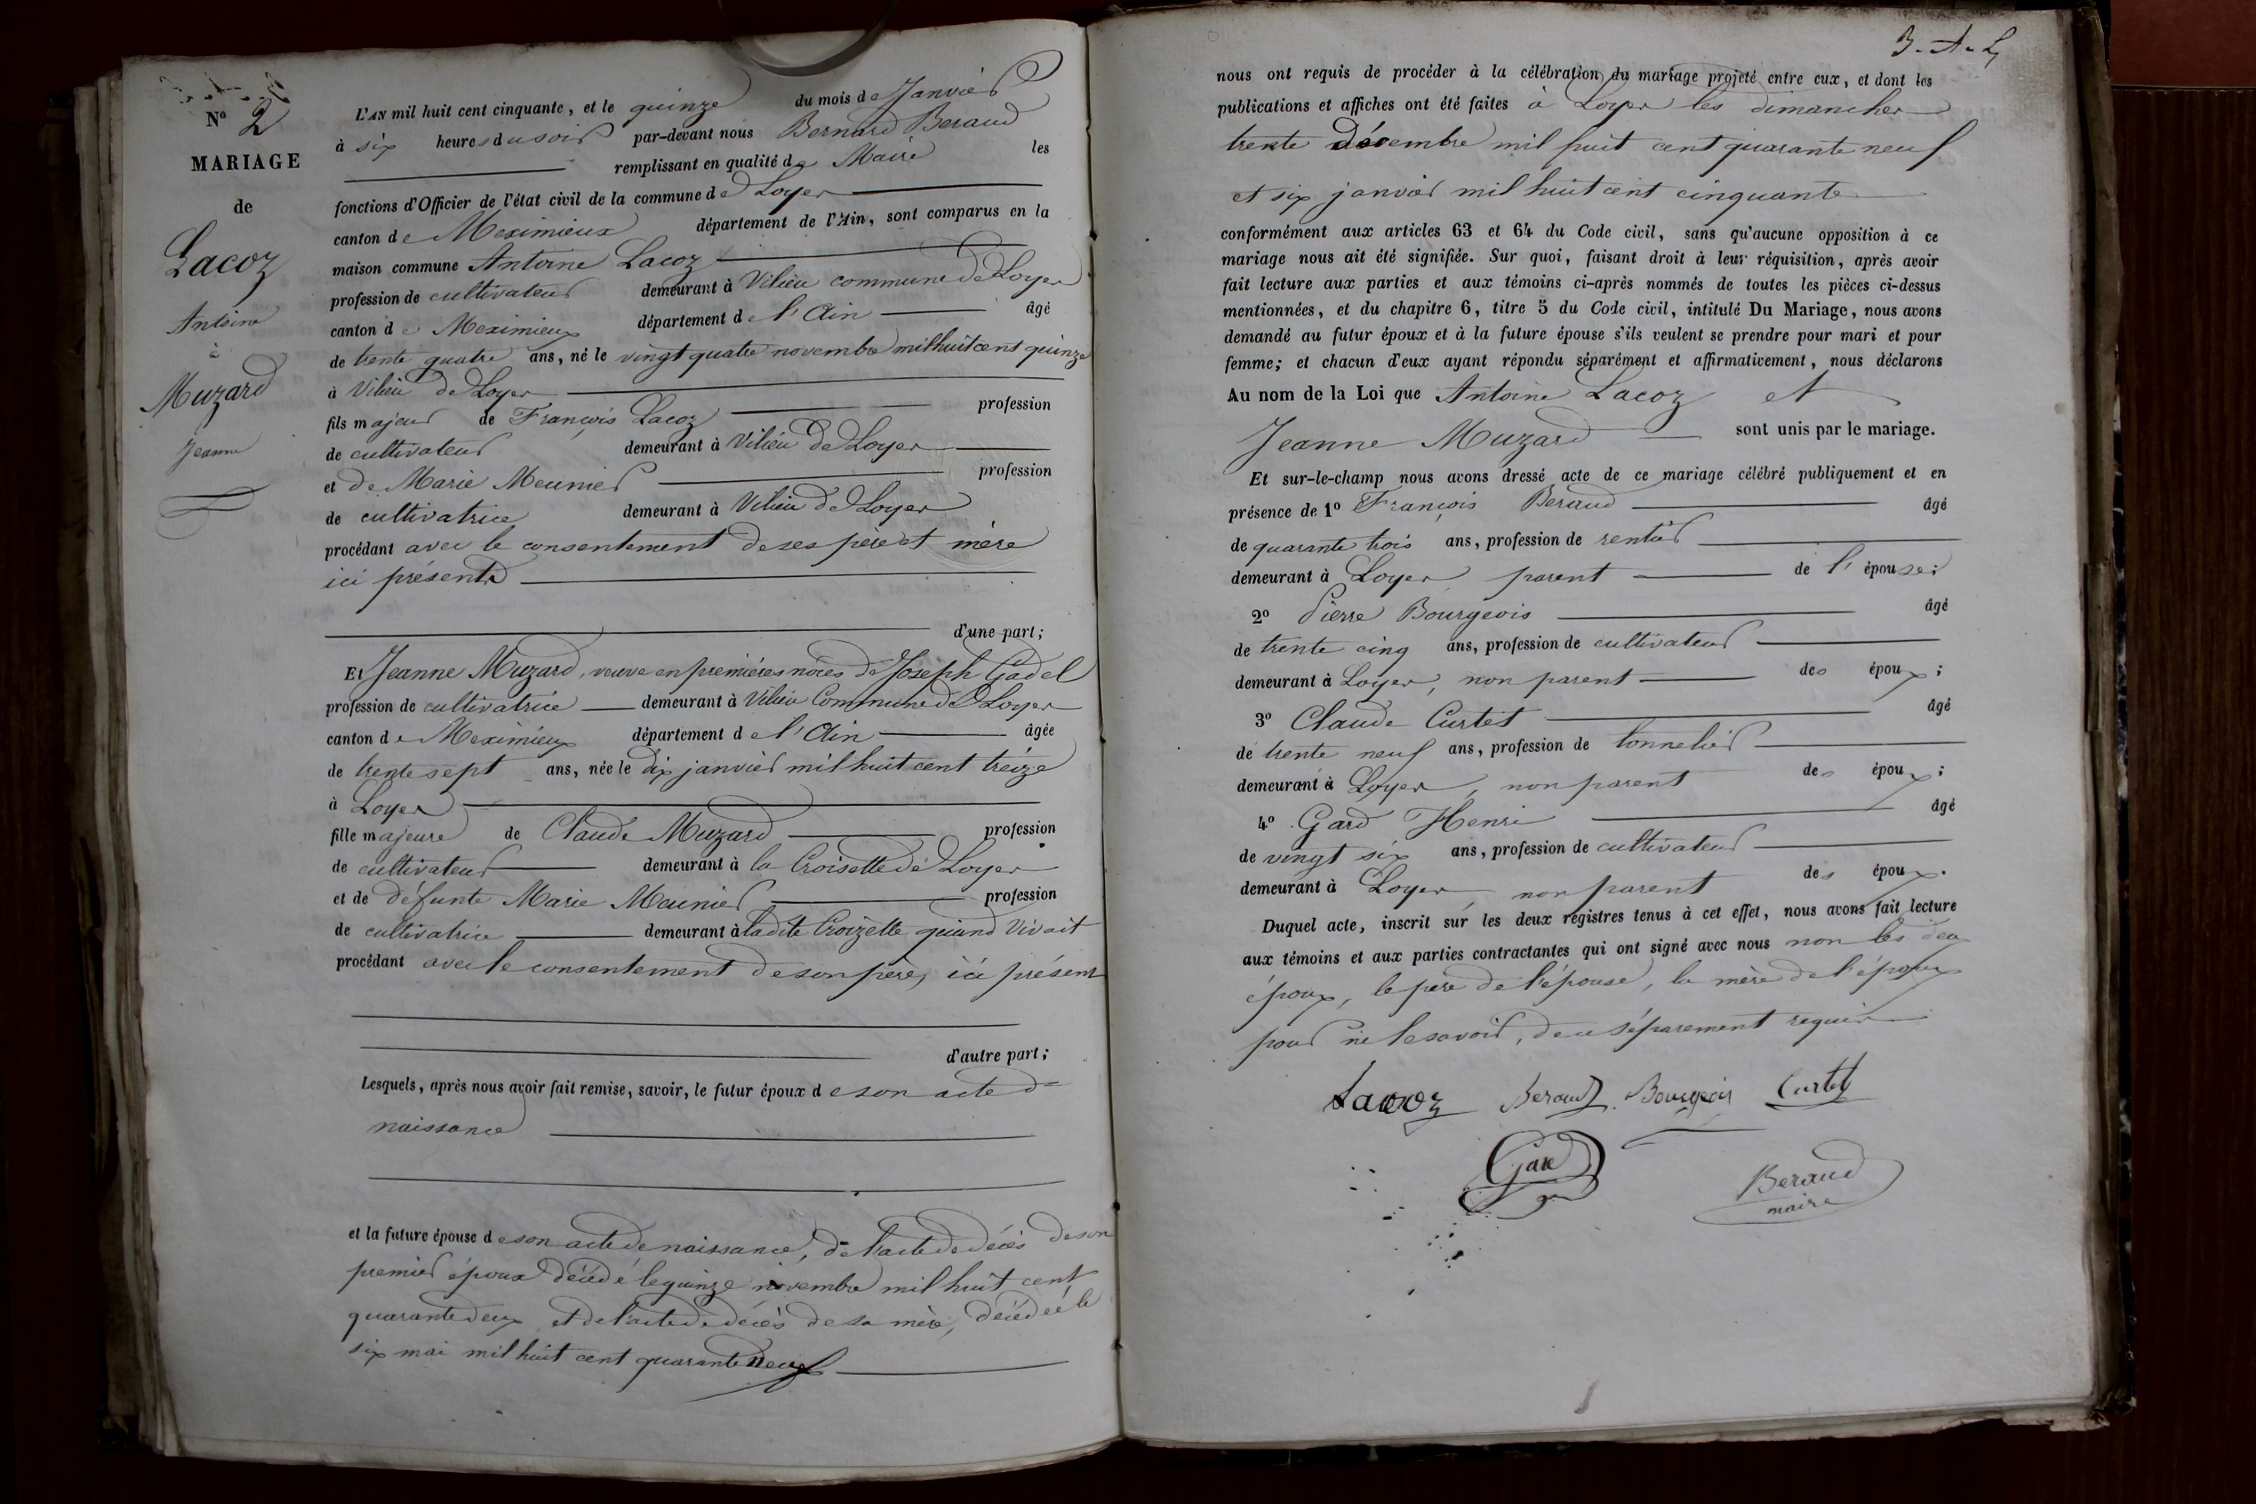 N° 2
MARIAGE
de
Lacoz
Antoine
à
Muzard
Jeanne
L'AN mil huit cent cinquante, et le quinze du mois de Janvier
à six heures du soir par-devant nous Bernard Beraud
remplissant en qualité de Maire les
fonctions d'Officier de l'état civil de la commune de Loyer
canton de Meximieux département de l'Ain, sont comparus en la
maison commune Antoine Lacoz
profession de cultivateur demeurant à Vilieu commune de Loyer
canton de Meximieux département de l'Ain âgé
de trente quatre ans, né le vingt quatre novembre mil huit cent quinze
à Vilieu de Loyer
fils majeur de François Lacoz profession
de cultivateur demeurant à Vilieu de Loyer
et de Marie Meunier profession
de cultivatrice demeurant à Vilieu de Loyer
procédant avec le consentement de ses père et mère
ici présents
d'une part;
Et Jeanne Muzard, veuve en premières noces de Joseph Gadel
profession de cultivatrice demeurant à Vilieu Commune de Loyer
canton de Meximieux département de l'Ain âgée
de trente sept ans, née le dix janvier mil huit cent treize
à Loyer
fille majeure de Claude Muzard profession
de cultivateur demeurant à la Croisette de Loyer
et de défunte Marie Meunier profession
de cultivatrice demeurant à ladite Croizette quand vivait
procédant avec le consentement de son père, ici présent
d'autre part;
Lesquels, après nous avoir fait remise, savoir, le futur époux de son acte de
naissance
et la future épouse de son acte de naissance, de l'acte de décès de son
premier époux décédé le quinze novembre mil huit cent
quarante deux et de l'acte de décès de sa mère, décédée le
six mai mil huit cent quarante neuf
3. A. L
nous ont requis de procéder à la célébration du mariage projeté entre eux, et dont les
publications et affiches ont été faites à Loyer les dimanches
trente Décembre mil huit cent quarante neuf
et six janvier mil huit cent cinquante
conformément aux articles 63 et 64 du Code civil, sans qu'aucune opposition à ce
mariage nous ait été signifiée. Sur quoi, faisant droit à leur réquisition, après avoir
fait lecture aux parties et aux témoins ci-après nommés de toutes les pièces ci-dessus
mentionnées, et du chapitre 6, titre 5 du Code civil, intitulé Du Mariage, nous avons
demandé au futur époux et à la future épouse s'ils veulent se prendre pour mari et pour
femme; et chacun d'eux ayant répondu séparément et affirmativement, nous déclarons
Au nom de la Loi que Antoine Lacoz et
Jeanne Muzard sont unis par le mariage.
Et sur-le-champ nous avons dressé acte de ce mariage célébré publiquement et en
présence de 1° François Beraud âgé
de quarante trois ans, profession de rentier
demeurant à Loyer parent de l'épouse;
2° Pierre Bourgeois âgé
de trente cinq ans, profession de cultivateur
demeurant à Loyer, non parent des époux;
3° Claude Curtet âgé
de trente neuf ans, profession de tonnelier
demeurant à Loyer, non parent des époux;
4° Gard Henri âgé
de vingt six ans, profession de cultivateur
demeurant à Loyer, non parent des époux.
Duquel acte, inscrit sur les deux registres tenus à cet effet, nous avons fait lecture
aux témoins et aux parties contractantes qui ont signé avec nous non les deux
époux, le père de l'épouse, la mère de l'époux
pour ne le savoir, de ce séparement requis
Lacoz Beraud Bourgeois Curtet
Gard
Beraud
maire